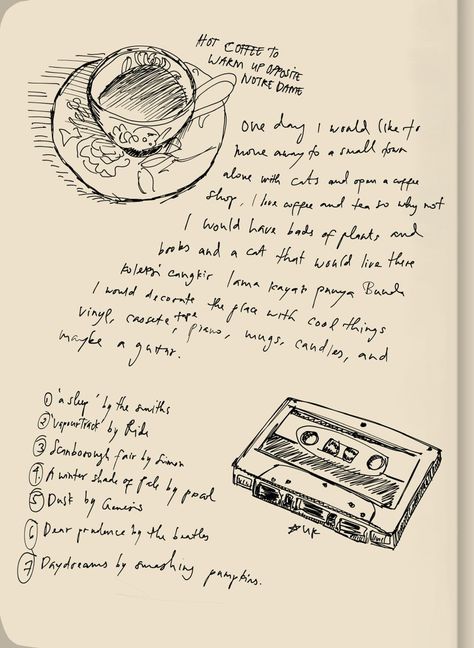 HOT COFFEE TO
WARM UP OPPOSITE
NOTRE DAME
One day I would like to
move away to a small town
alone with cats and open a coffee
shop, I love coffee and tea so why not
I would have bads of plants and
books and a cat that would live there
koleksi cangkir lama kayak punya Bunda
I would decorate the place with cool things
vinyl, cassete tape, piano, mugs, candles, and
maybe a guitar.
① 'asleep' by the smiths
② 'vapourtrack' by Ride
③ Scarborough fair by Simon
④ A winter shade of pale by procol
⑤ Dusk by Genesis
⑥ Dear prudence by the beatles
⑦ Daydreams by smashing pumpkins.